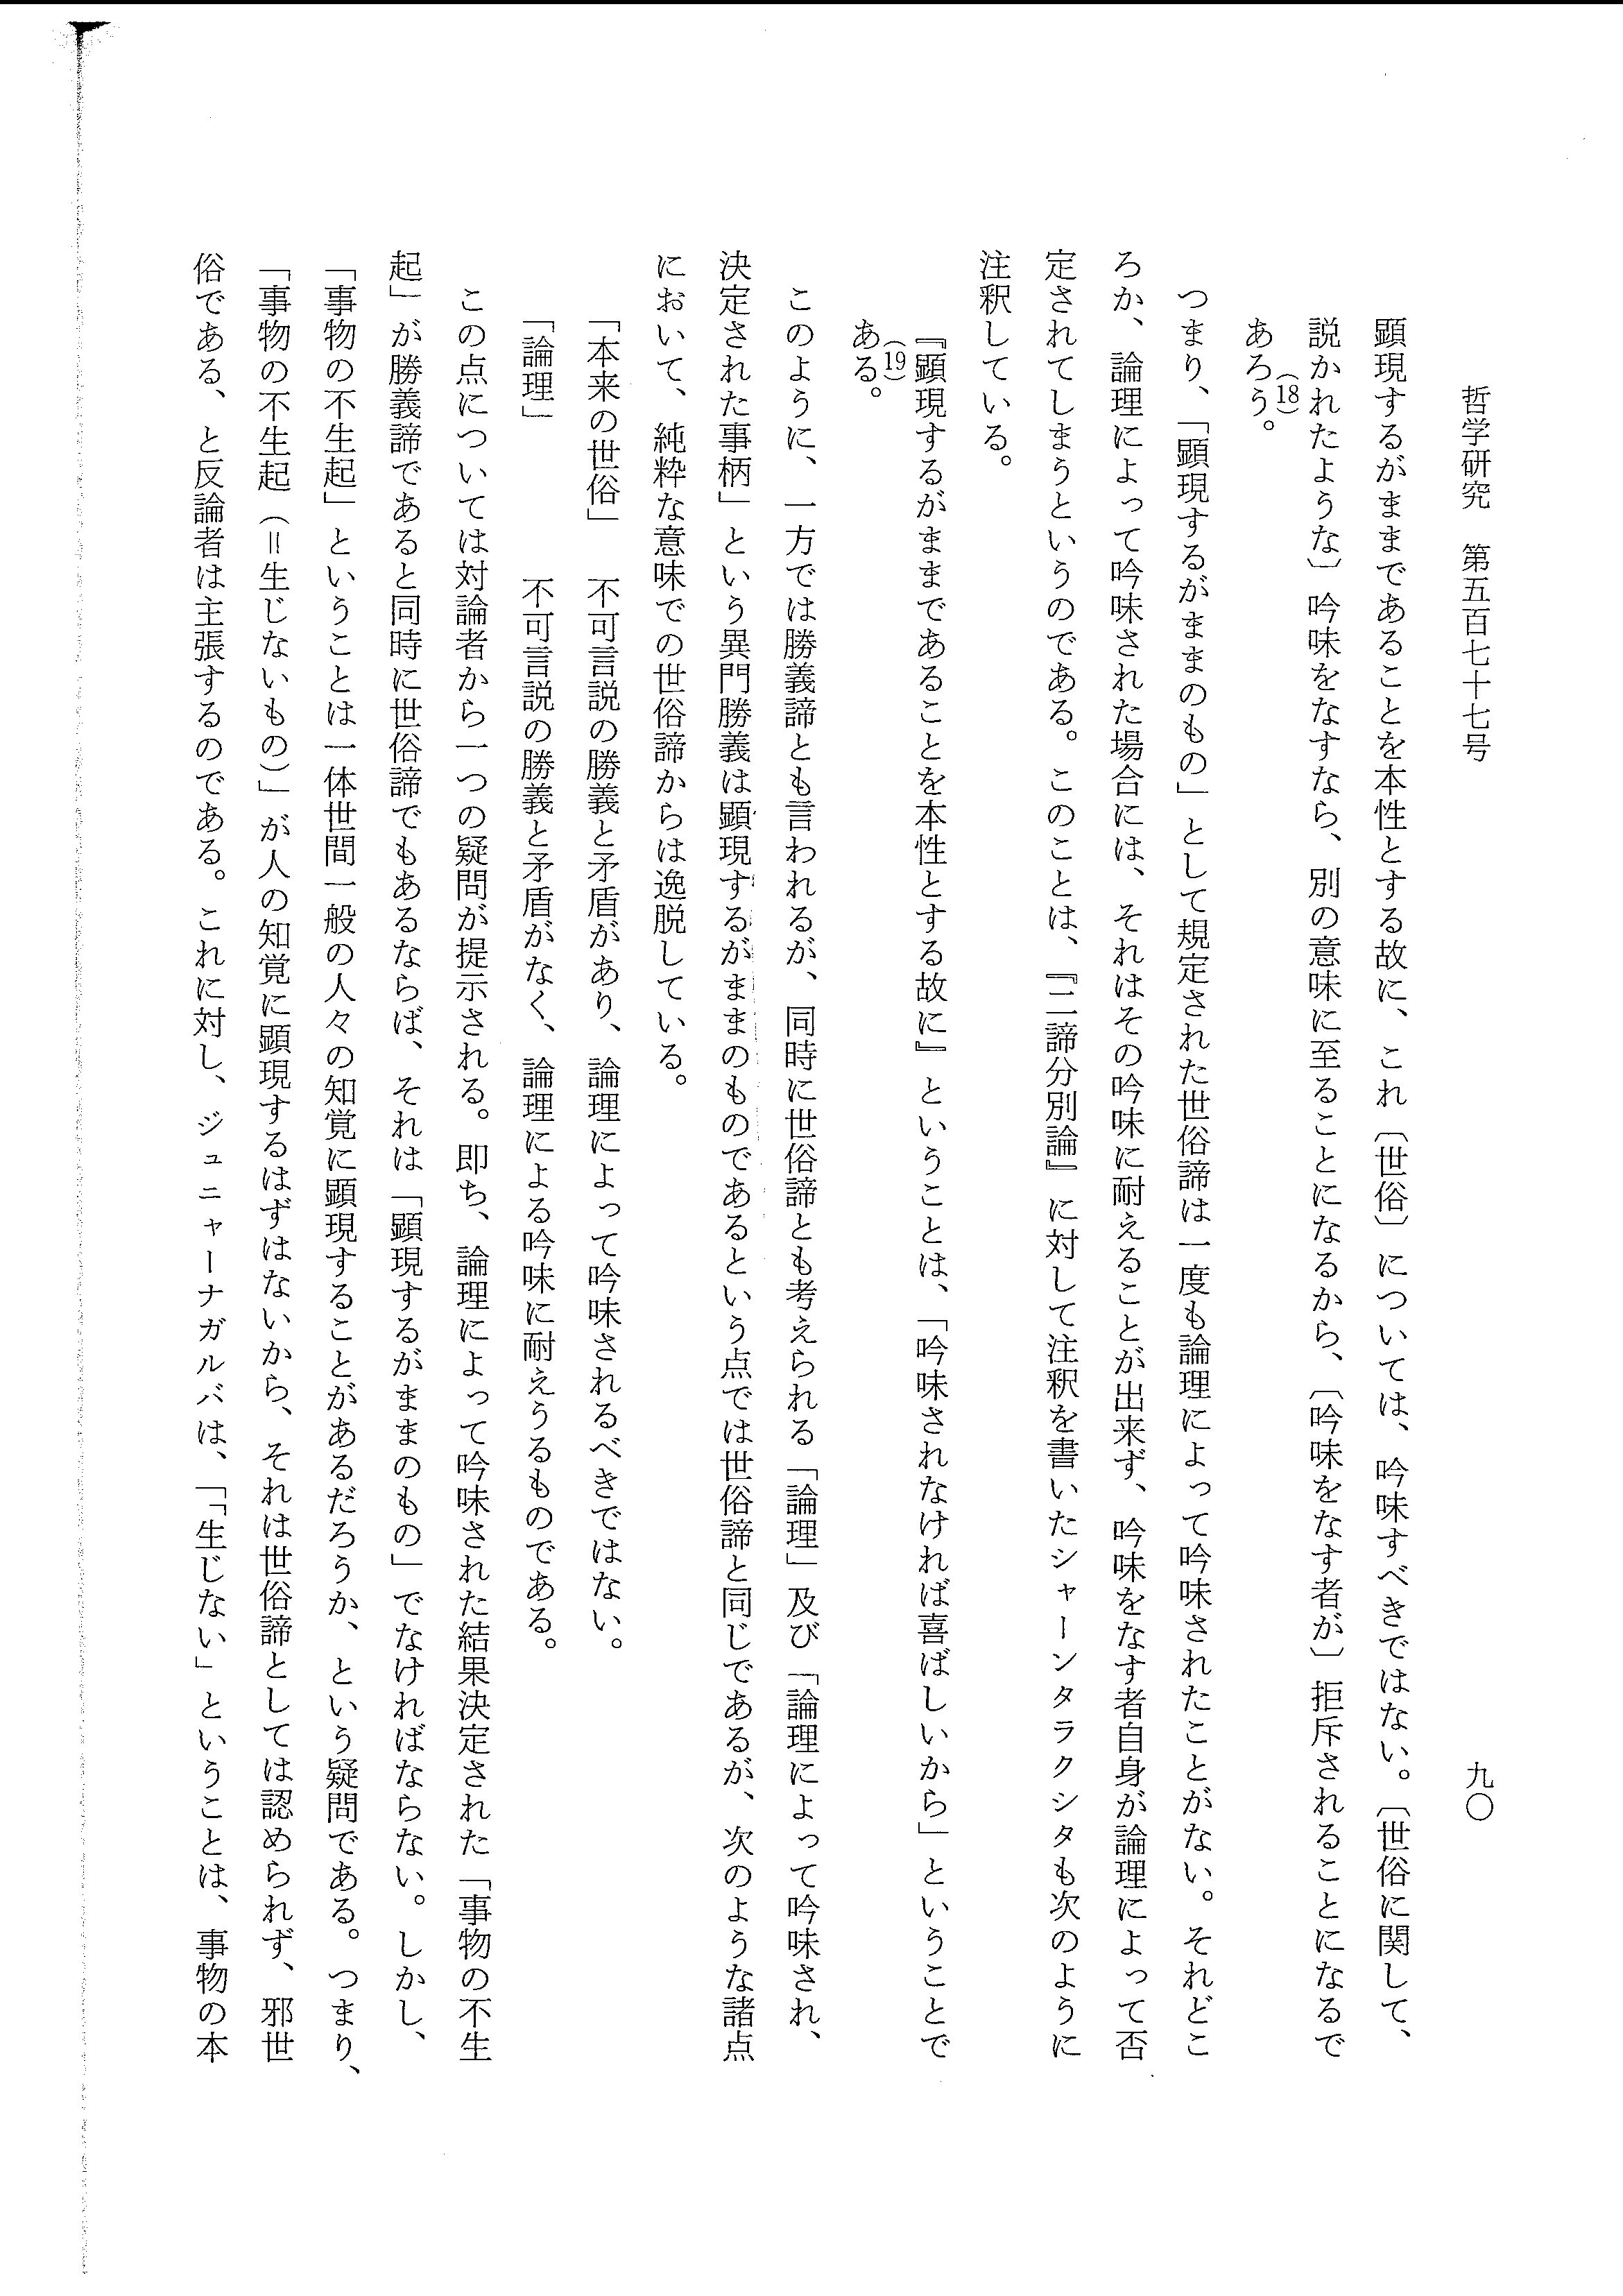 哲学研究　第五百七十七号　九〇
顕現するがままであることを本性とする故に、これ〔世俗〕については、吟味すべきではない。〔世俗に関して、
説かれたような〕吟味をなすなら、別の意味に至ることになるから、〔吟味をなす者が〕拒斥されることになるで
あろう。(18)
つまり、「顕現するがままのもの」として規定された世俗諦は一度も論理によって吟味されたことがない。それどこ
ろか、論理によって吟味された場合には、それはその吟味に耐えることが出来ず、吟味をなす者自身が論理によって否
定されてしまうというのである。このことは、『二諦分別論』に対して注釈を書いたシャーンタラクシタも次のように
注釈している。
『顕現するがままであることを本性とする故に』ということは、「吟味されなければ喜ばしいから」ということで
ある。(19)
このように、一方では勝義諦とも言われるが、同時に世俗諦とも考えられる「論理」及び「論理によって吟味され、
決定された事柄」という異門勝義は顕現するがままのものであるという点では世俗諦と同じであるが、次のような諸点
において、純粋な意味での世俗諦からは逸脱している。
「本来の世俗」　不可言説の勝義と矛盾があり、論理によって吟味されるべきではない。
「論理」　不可言説の勝義と矛盾がなく、論理による吟味に耐えうるものである。
この点については対論者から一つの疑問が提示される。即ち、論理によって吟味された結果決定された「事物の不生
起」が勝義諦であると同時に世俗諦でもあるならば、それは「顕現するがままのもの」でなければならない。しかし、
「事物の不生起」ということは一体世間一般の人々の知覚に顕現することがあるだろうか、という疑問である。つまり、
「事物の不生起（＝生じないもの）」が人の知覚に顕現するはずはないから、それは世俗諦としては認められず、邪世
俗である、と反論者は主張するのである。これに対し、ジュニャーナガルバは、「「生じない」ということは、事物の本